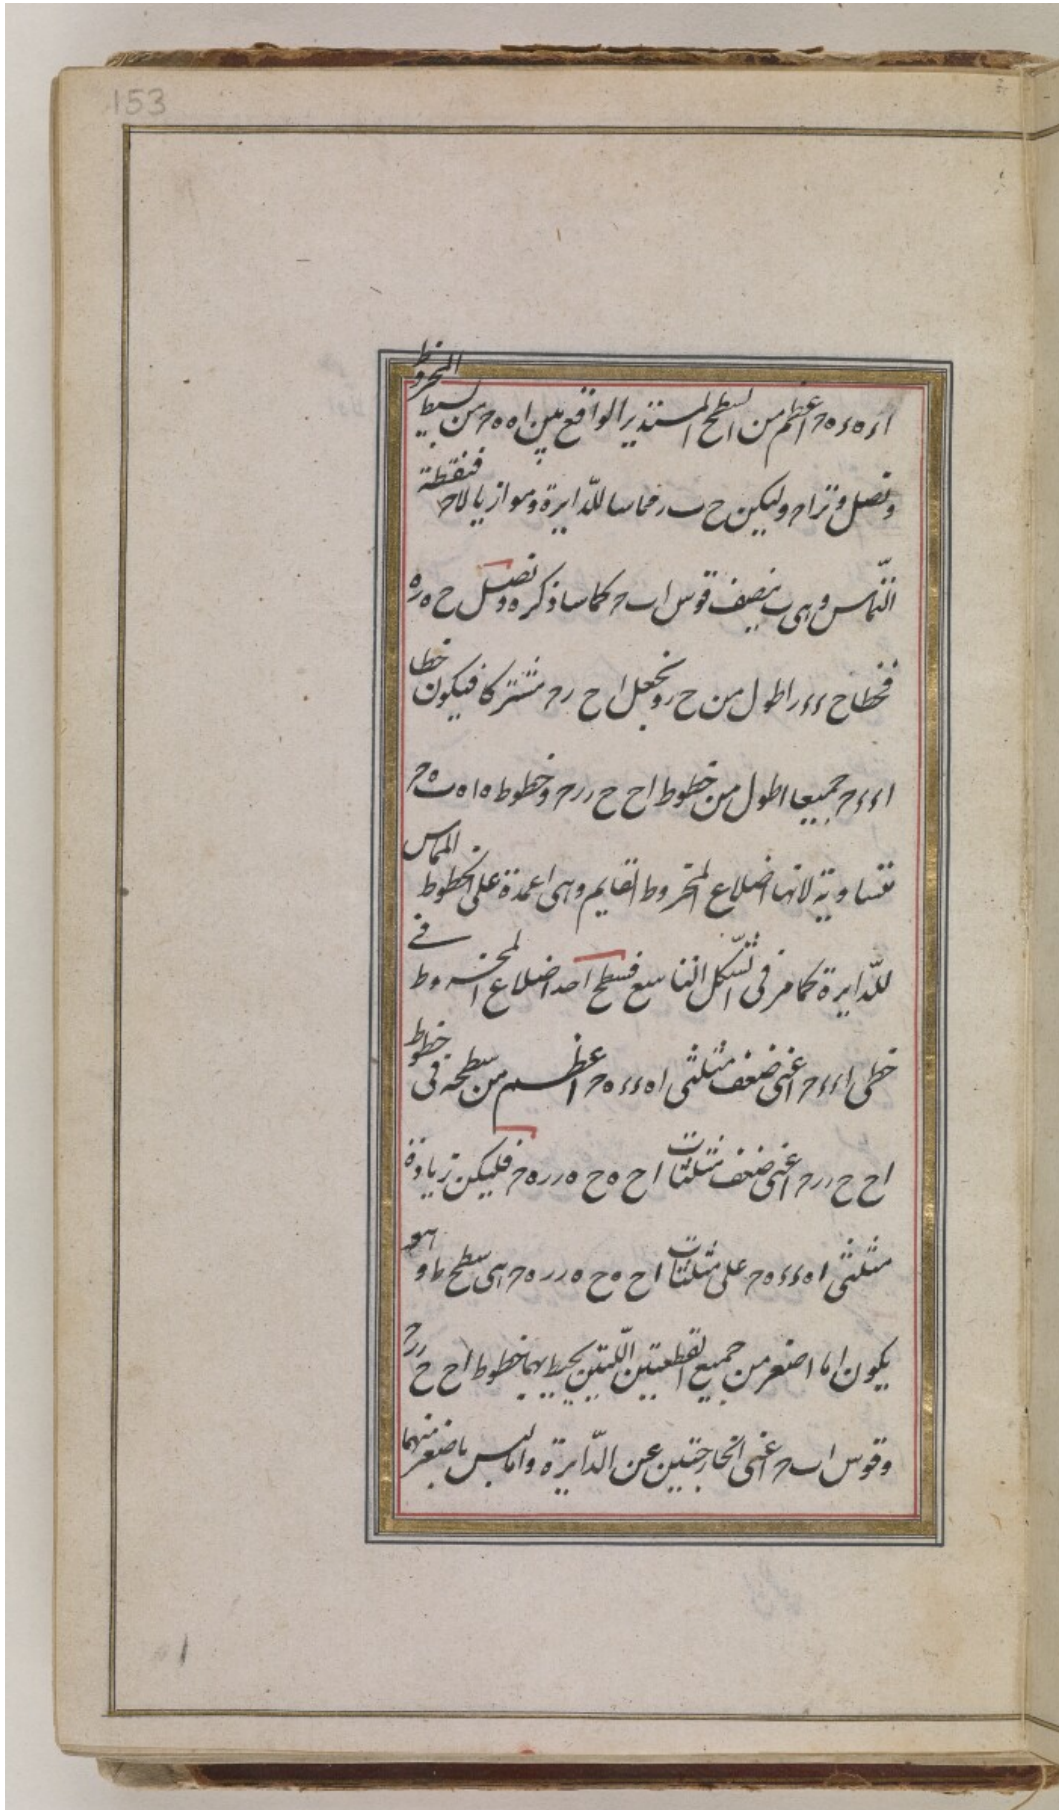 153
اء ه ء ه ح اعظم من السطح المستدير الواقع بين ا ه ه ح من بسيط المخروط
ونصل وتر ا ح وليكن ح ب ر مماسا للدايرة وموازيا لا ح فنقطة
التماس وهى ب بنصف قوس ا ب ح كما سا ذكره ونصل ح ه ر ه
فخطا ح ء ء ر اطول من ح ر ونجعل ا ح ر ح مشتركا فيكون خطا
ا ء ء ح جميعا اطول من خطوط ا ح ح ر ر ح وخطوط ه ا ه ب ه ح
متساوية لانها اضلاع المخروط القايم وهى اعمدة على الخطوط المماس
للدايرة كما مر فى الشكل التاسع فسطح احد اضلاع المخروط فى
خطى ا ء ء ح اعنى ضعف مثلثى ا ه ء ء ه ح اعظم من سطحه فى خطوط
ا ح ح ر ر ح اعنى ضعف مثلثات ا ح ه ح ه ر ر ه ح فليكن زيادة
مثلثى ا ه ء ء ه ح على مثلثات ا ح ه ح ه ر ر ه ح هى سطح ط وهو
يكون اما اصغر من جميع القطعتين اللتين يحيط بهما خطوط ا ح ح ر ر ح
وقوس ا ب ح اعنى الخارجتين عن الدايرة واما ليس باصغر منهما